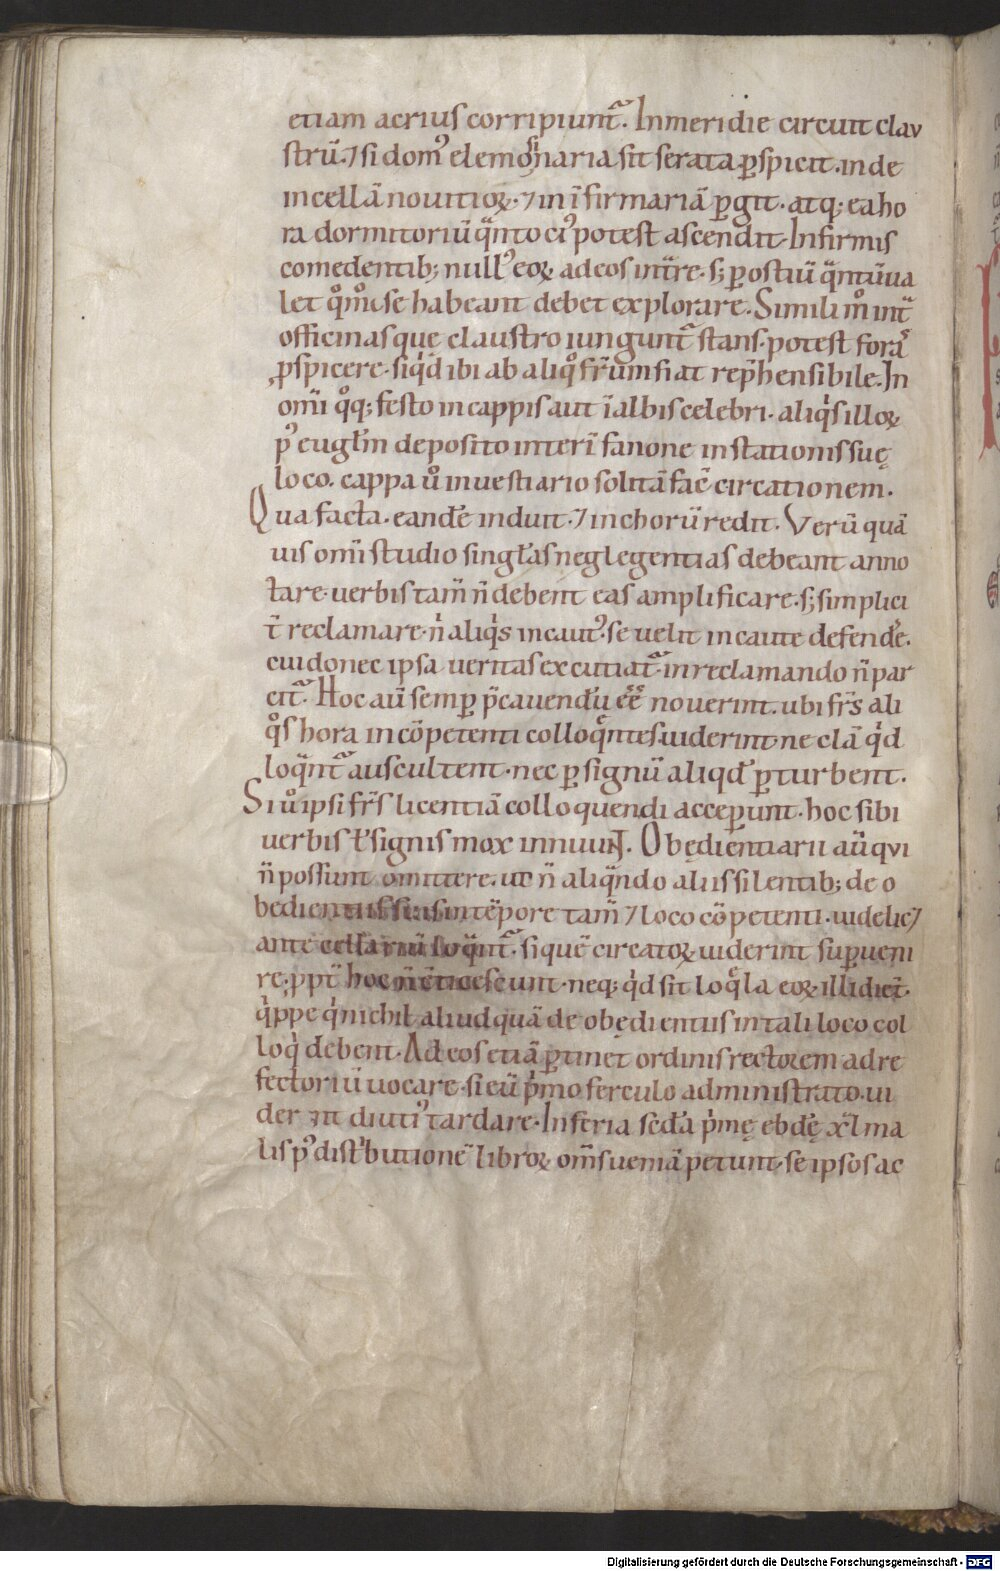 etiam acrius corripiunt᷑. In meridie circuit clau
strū. ⁊ si dom᷒ elemosinaria sit serata ꝑspicit. inde
in cellā nouitioꝝ. ⁊ in īfirmariā ꝑgit. atq; ea ho
ra dormitoriū qͣnto ci᷒ potest ascendit. Infirmis
comedentib; null᷒ eoꝝ ad eos intͣre. s; ꝑ ostiū qͣntū ua
let qͦmͦ se habeant debet explorare. Simili mͦ intͣ
officinas que claustro iungunt᷑ stans. potest foras
ꝓspicere. si qͥd ibi ab aliqͦ frūm fiat rep̄hensibile. In
om̄i qͦq; festo in cappis aut ī albis celebri. aliqͥs illoꝝ
p᷒ eugl̄m deposito interī fanone in stationis suę
loco. cappa uͦ in uestiario solitā fac̄ circationem.
Qua facta. eandē induit. ⁊ in chorū redit. Verū quā
uis om̄i studio singl̄as neglegentias debeant anno
tare. uerbis tam̄ n̄ debent eas amplificare. s; simplici
t̄ reclamare. n̄ aliqͥs incaut᷒. se uelit incaute defendē.
cui donec ipsa ueritas excutiat᷑. in reclamando n̄ par
cit᷑. Hoc aū semꝑ p̄cauendū ēē nouerint. ubi frs̄ ali
qͦs hora incōpetenti colloqͣntes uiderint. ne clā qͥd
loqͣnt᷑ auscultent. nec ꝑ signū aliqd̄ ꝑturbent.
Si uͦ ipsi frs̄ licentiā colloquendi acceꝑunt. hoc sibi
uerbis ł signis mox innuunt. Obędientiarii aū qui
n̄ possunt omittere. ut n̄ aliqͣndo aliis silentib; de o
bedientiis suis in tēpore tam̄ ⁊ loco cōpetenti. uidelic⁊
ante cellariū loqͣnt᷑. si quē circatoꝝ uiderint suꝑueni
re. ꝓpt̄ hoc n̄ cticescunt. neq; qͥd sit loqͣla eoꝝ. illi diēt.
qͥppe qͥ nichil aliud quā de obędientiis in tali loco col
loqͥ debent. Ad eos etiā ꝑtinet ordinis rectorem ad re
fectoriū uocare. si cū pͥmo ferculo administrato. ui
derint diuti᷒ tardare. In feria scd̄a pͥmę ebdē xl ma
lis p᷒ distͥbutionē libroꝝ om̄s ueniā petunt. se ipsos ac
Digitalisierung gefördert durch die Deutsche Forschungsgemeinschaft - DFG